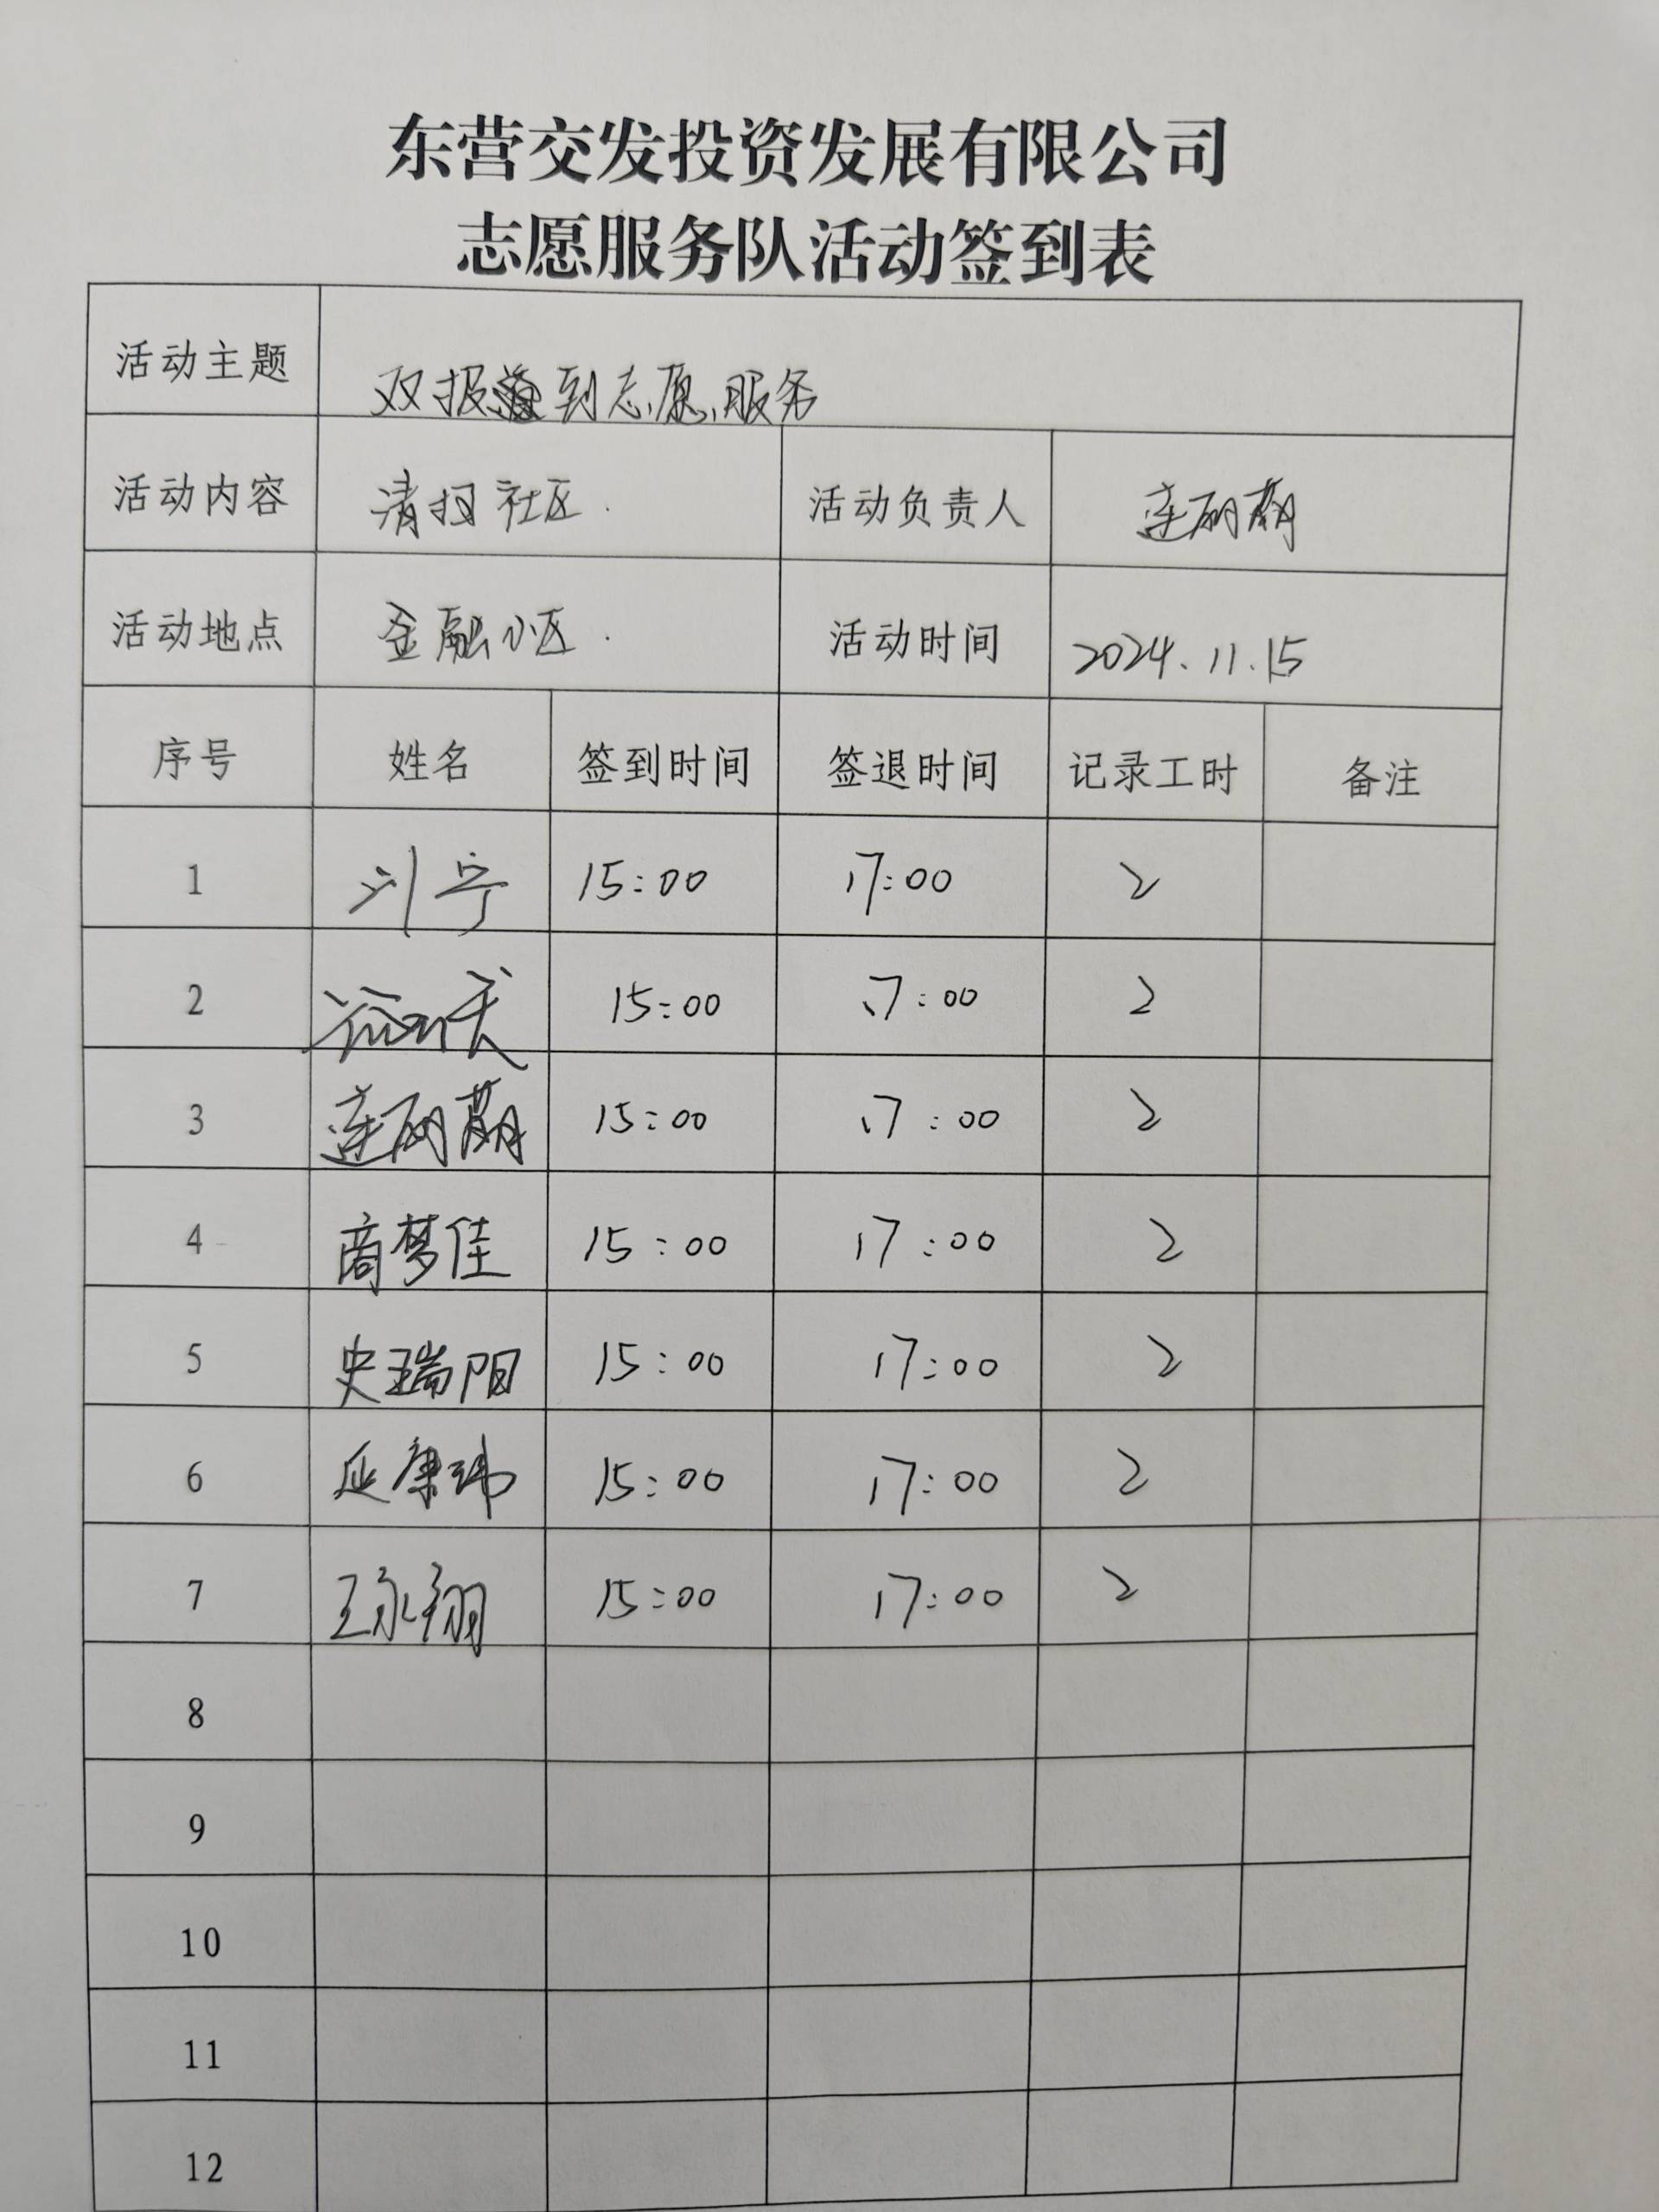 东营交发投资发展有限公司
志愿服务队活动签到表
活动主题 双报到志愿服务
活动内容 清扫社区 活动负责人 连丽萌
活动地点 金融小区 活动时间 2024.11.15
序号 姓名 签到时间 签退时间 记录工时 备注
1 刘宁 15:00 17:00 2
2 15:00 17:00 2
3 连丽萌 15:00 17:00 2
4 商梦佳 15:00 17:00 2
5 史瑞阳 15:00 17:00 2
6 延康玮 15:00 17:00 2
7 王永翔 15:00 17:00 2
8
9
10
11
12